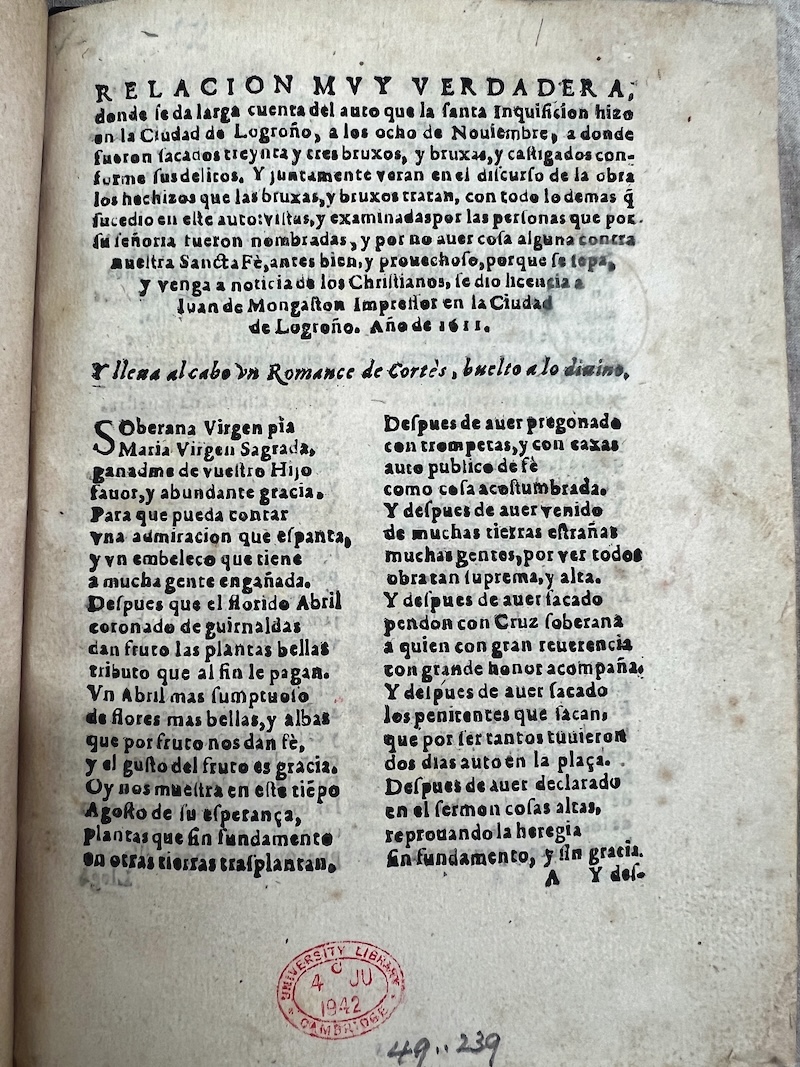 RELACION MVY VERDADERA,
donde se da larga cuenta del auto que la santa Inquisicion hizo
en la Ciudad de Logroño, a los ocho de Nouiembre, a donde
fueron sacados treynta y tres bruxos, y bruxas, y castigados con-
forme sus delitos. Y juntamente veran en el discurso de la obra
los hechizos que las bruxas, y bruxos tratan, con todo lo demas q̃
sucedio en este auto: vistas, y examinadas por las personas que por
su señoria fueron nombradas, y por no auer cosa alguna contra
nuestra Sancta Fè, antes bien, y prouechoso, porque se sepa,
y venga a noticia de los Christianos, se dio licencia a
Iuan de Mongaston Impressor en la Ciudad
de Logroño. Año de 1611.
Y lleua al cabo vn Romance de Cortès, buelto a lo diuino.
SOberana Virgen pia
Maria Virgen Sagrada,
ganadme de vuestro Hijo
fauor, y abundante gracia.
Para que pueda contar
vna admiracion que espanta,
y vn embeleco que tiene
a mucha gente engañada.
Despues que el florido Abril
coronado de guirnaldas
dan fruto las plantas bellas
tributo que al fin le pagan.
Vn Abril mas sumptuoso
de flores mas bellas, y albas
que por fruto nos dan fè,
y el gusto del fruto es gracia.
Oy nos muestra en este tiẽpo
Agosto de su esperança,
plantas que sin fundamento
en otras tierras trasplantan.
Despues de auer pregonado
con trompetas, y con caxas
auto publico de fè
como cosa acostumbrada.
Y despues de auer venido
de muchas tierras estrañas
muchas gentes, por ver todos
obra tan suprema, y alta.
Y despues de auer sacado
pendon con Cruz soberana
a quien con gran reuerencia
con grande honor acompaña.
Y despues de auer sacado
los penitentes que sacan,
que por ser tantos tuuieron
dos dias auto en la plaça.
Despues de auer declarado
en el sermon cosas altas,
reprouando la heregia
sin fundamento, y sin gracia.
A Y des-
UNIVERSITY LIBRARY
C
4 JU
1942
CAMBRIDGE
49..239